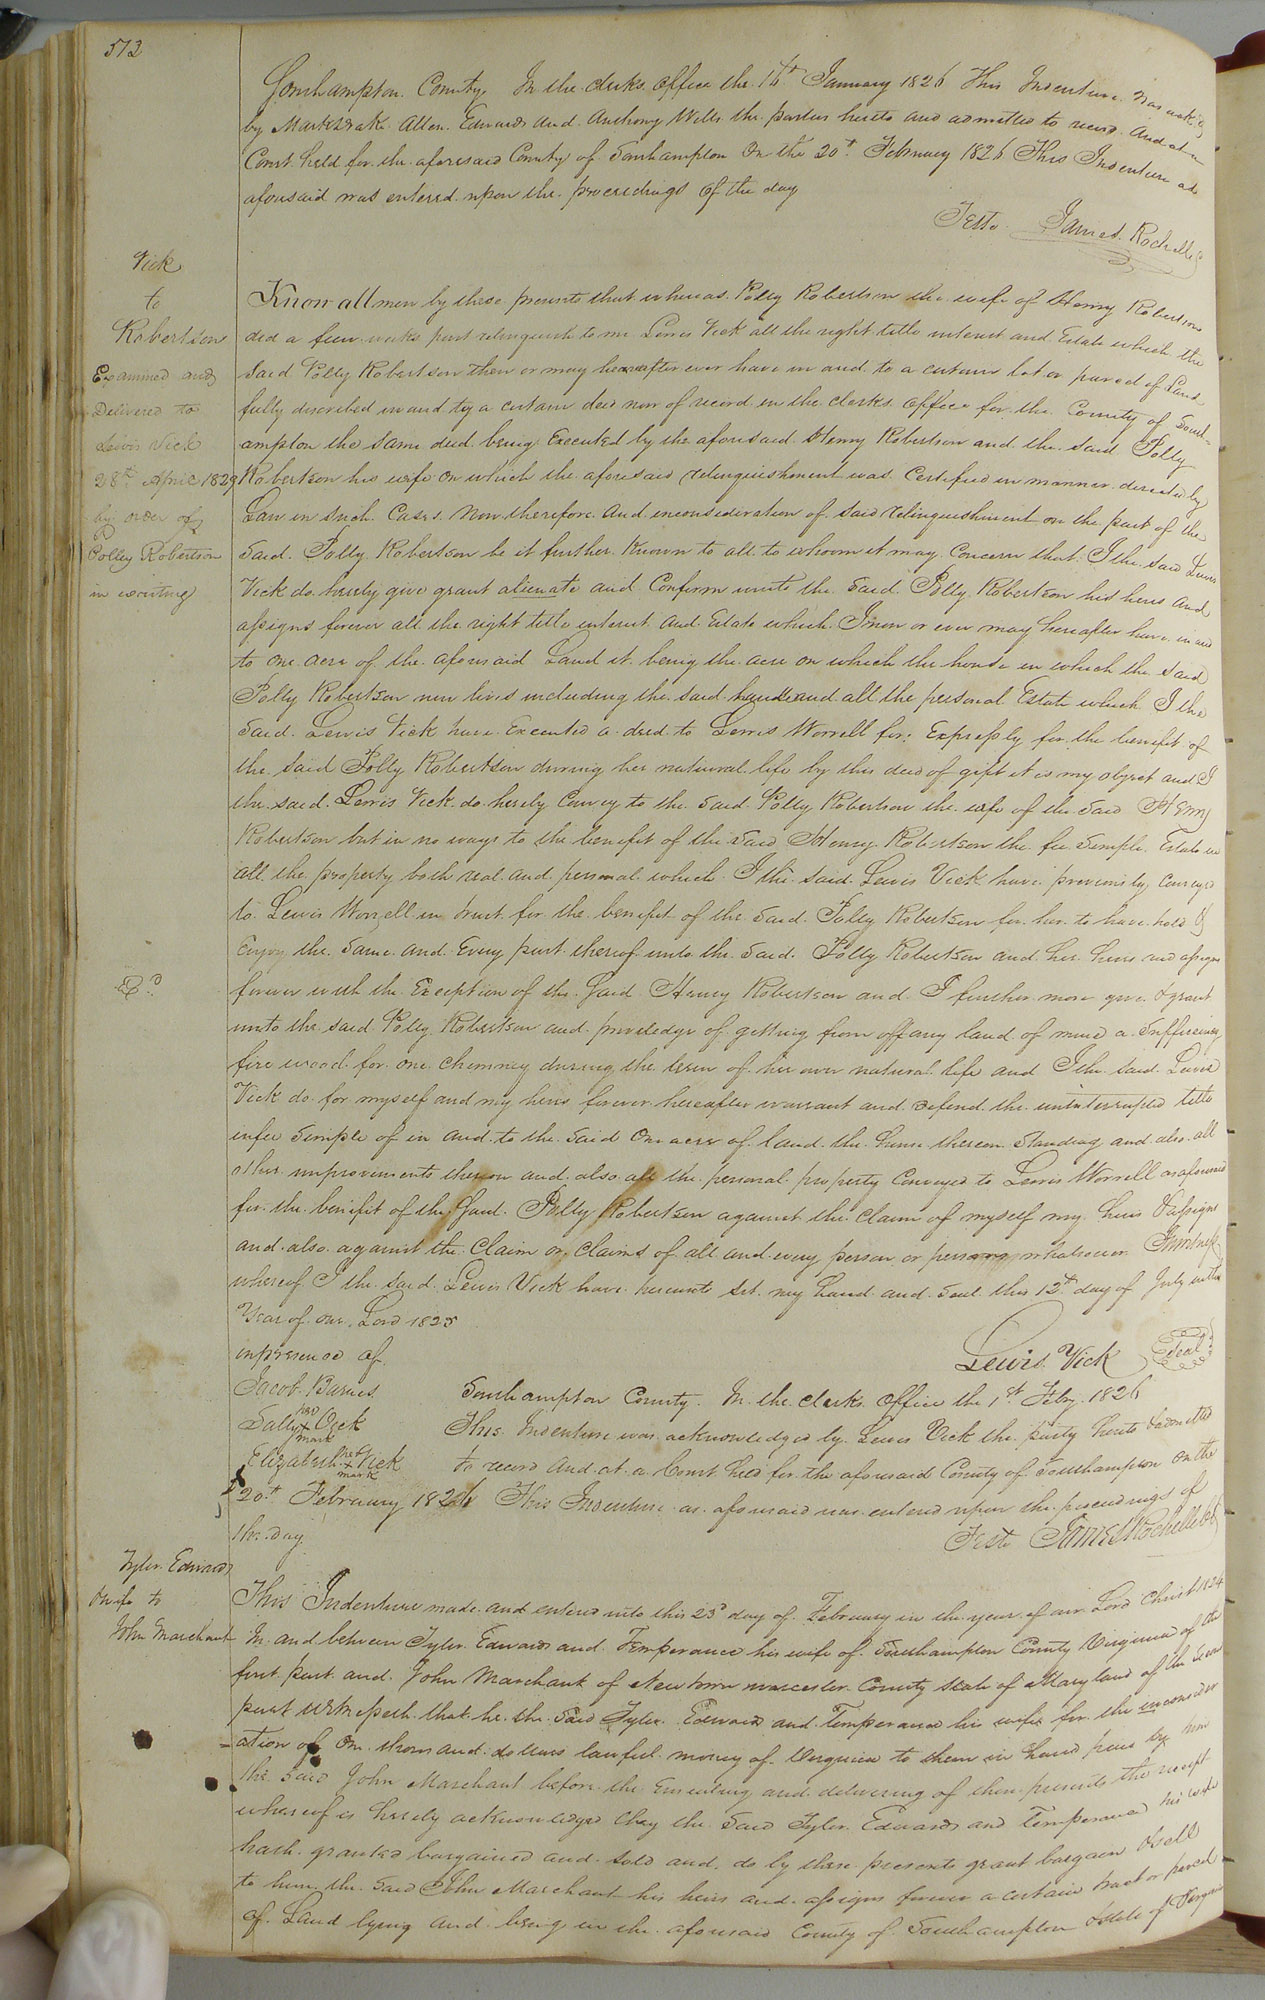 512
Southampton County. In the clerks Office the 16th January 1826 This Indenture was ack.d
by Marksdake Allen. Edwards and Anthony Wells the parties hereto and admitted to record. And at a
Court held for the aforesaid County of Southampton On the 20th February 1826 This Indenture as
aforesaid was entered upon the proceedings of the day
Teste James Rochelle
Vick
to
Robertson
Examined and
Delivered to
Lewis Vick
28th April 1829
by order of
Polley Robertson
in writing
Know all men by these presents that whereas Polly Robertson the wife of Henry Robertson
did a few weeks past relinquish to me Lewis Vick all the right title interest and Estate which the
said Polly Robertson then or may hereafter ever have in and to a certain lot or parcel of Land
fully described in and by a certain deed now of record in the clerks office for the County of South-
ampton the same deed being Executed by the aforesaid Henry Robertson and the said Polly
Robertson his wife on which the aforesaid relinquishment was Certified in manner directed by
Law in such Cases. Now therefore And inconsideration of said relinquishment on the part of the
said. Polly Robertson be it further Known to all to whom it may Concern that I the said Lewis
Vick do hereby give grant alienate and Confirm unto the said Polly Robertson his heirs and
assigns forever all the right title interest and Estate which I now or ever may hereafter have in and
to one acre of the aforesaid Land it being the acre on which the house in which the said
Polly Robertson now lives including the said house and all the personal Estate which I the
said. Lewis Vick have Executed a deed to Lewis Worrell for Expressly for the benefit of
the said Polly Robertson during her natural life by this deed of gift it is my object and I
the said. Lewis Vick do hereby Convey to the said Polly Robertson the wife of the said Henry
Robertson but in no ways to the benefit of the said Henry Robertson the fee Simple Estate in
all the property both real and personal which I the said Lewis Vick have previously Conveyed
to Lewis Worrell in trust for the benefit of the said Polly Robertson for her to have hold &
Enjoy the same and Every part thereof unto the said. Polly Robertson and her heirs and assigns
Do
forever with the Exception of the said Henry Robertson and I further more give & grant
unto the said Polly Robertson and priviledge of getting from off any land of mine a sufficiency
fire wood for one chimney during the term of her own natural life and I the said Lewis
Vick do for myself and my heirs forever hereafter warrant and defend the uninterrupted title
infee Simple of in and to the said One acre of land the house thereon Standing and also all
other improvements thereon and also all the personal property Conveyed to Lewis Worrell as aforesaid
for the benifit of the said Polly Robertson against the claim of myself my heirs & assigns
and also against the Claim or Claims of all and every person or persons whatsoever In witness
whereof I the said Lewis Vick have hereunto set my hand and seal this 12th day of July in the
Year of our Lord 1825
inpresence of
Lewis Vick Seal
Jacob Barnes
Sally her x mark Vick
Elizabeth her x mark Vick
Southampton County. In the clerks office the 1st Feby. 1826
This Indenture was acknowledged by Lewis Vick the party hereto & admitted
to record And at a Court held for the aforesaid County of Southampton On the
20th February 1826 This Indenture as aforesaid was entered upon the proceedings of
the day
Teste James Rochelle
Tyler Edwards
& wife to
John Marchant
This Indenture made and entered into this 23d day of February in the year of our Lord Christ 1824
In and between Tyler Edwards and Temperance his wife of Southampton County Virginia of the
first part and John Marchant of New town worcester County State of Maryland of the
part witnesseth that he the said Tyler Edwards and Temperance his wife for the inconsider
ation of One thousand dollars lawful money of Virginia to them in hand paid by him
the said John Marchant before the Ensealing and delivering of these presents the receipt
whereof is hereby acknowledged they the said Tyler Edwards and Temperance his wife
hath granted bargained and sold and do by these presents grant bargain & sell
to him the said John Marchant his heirs and assigns forever a certain tract or parcel
of Land lying and being in the aforesaid County of Southampton & State of Virginia